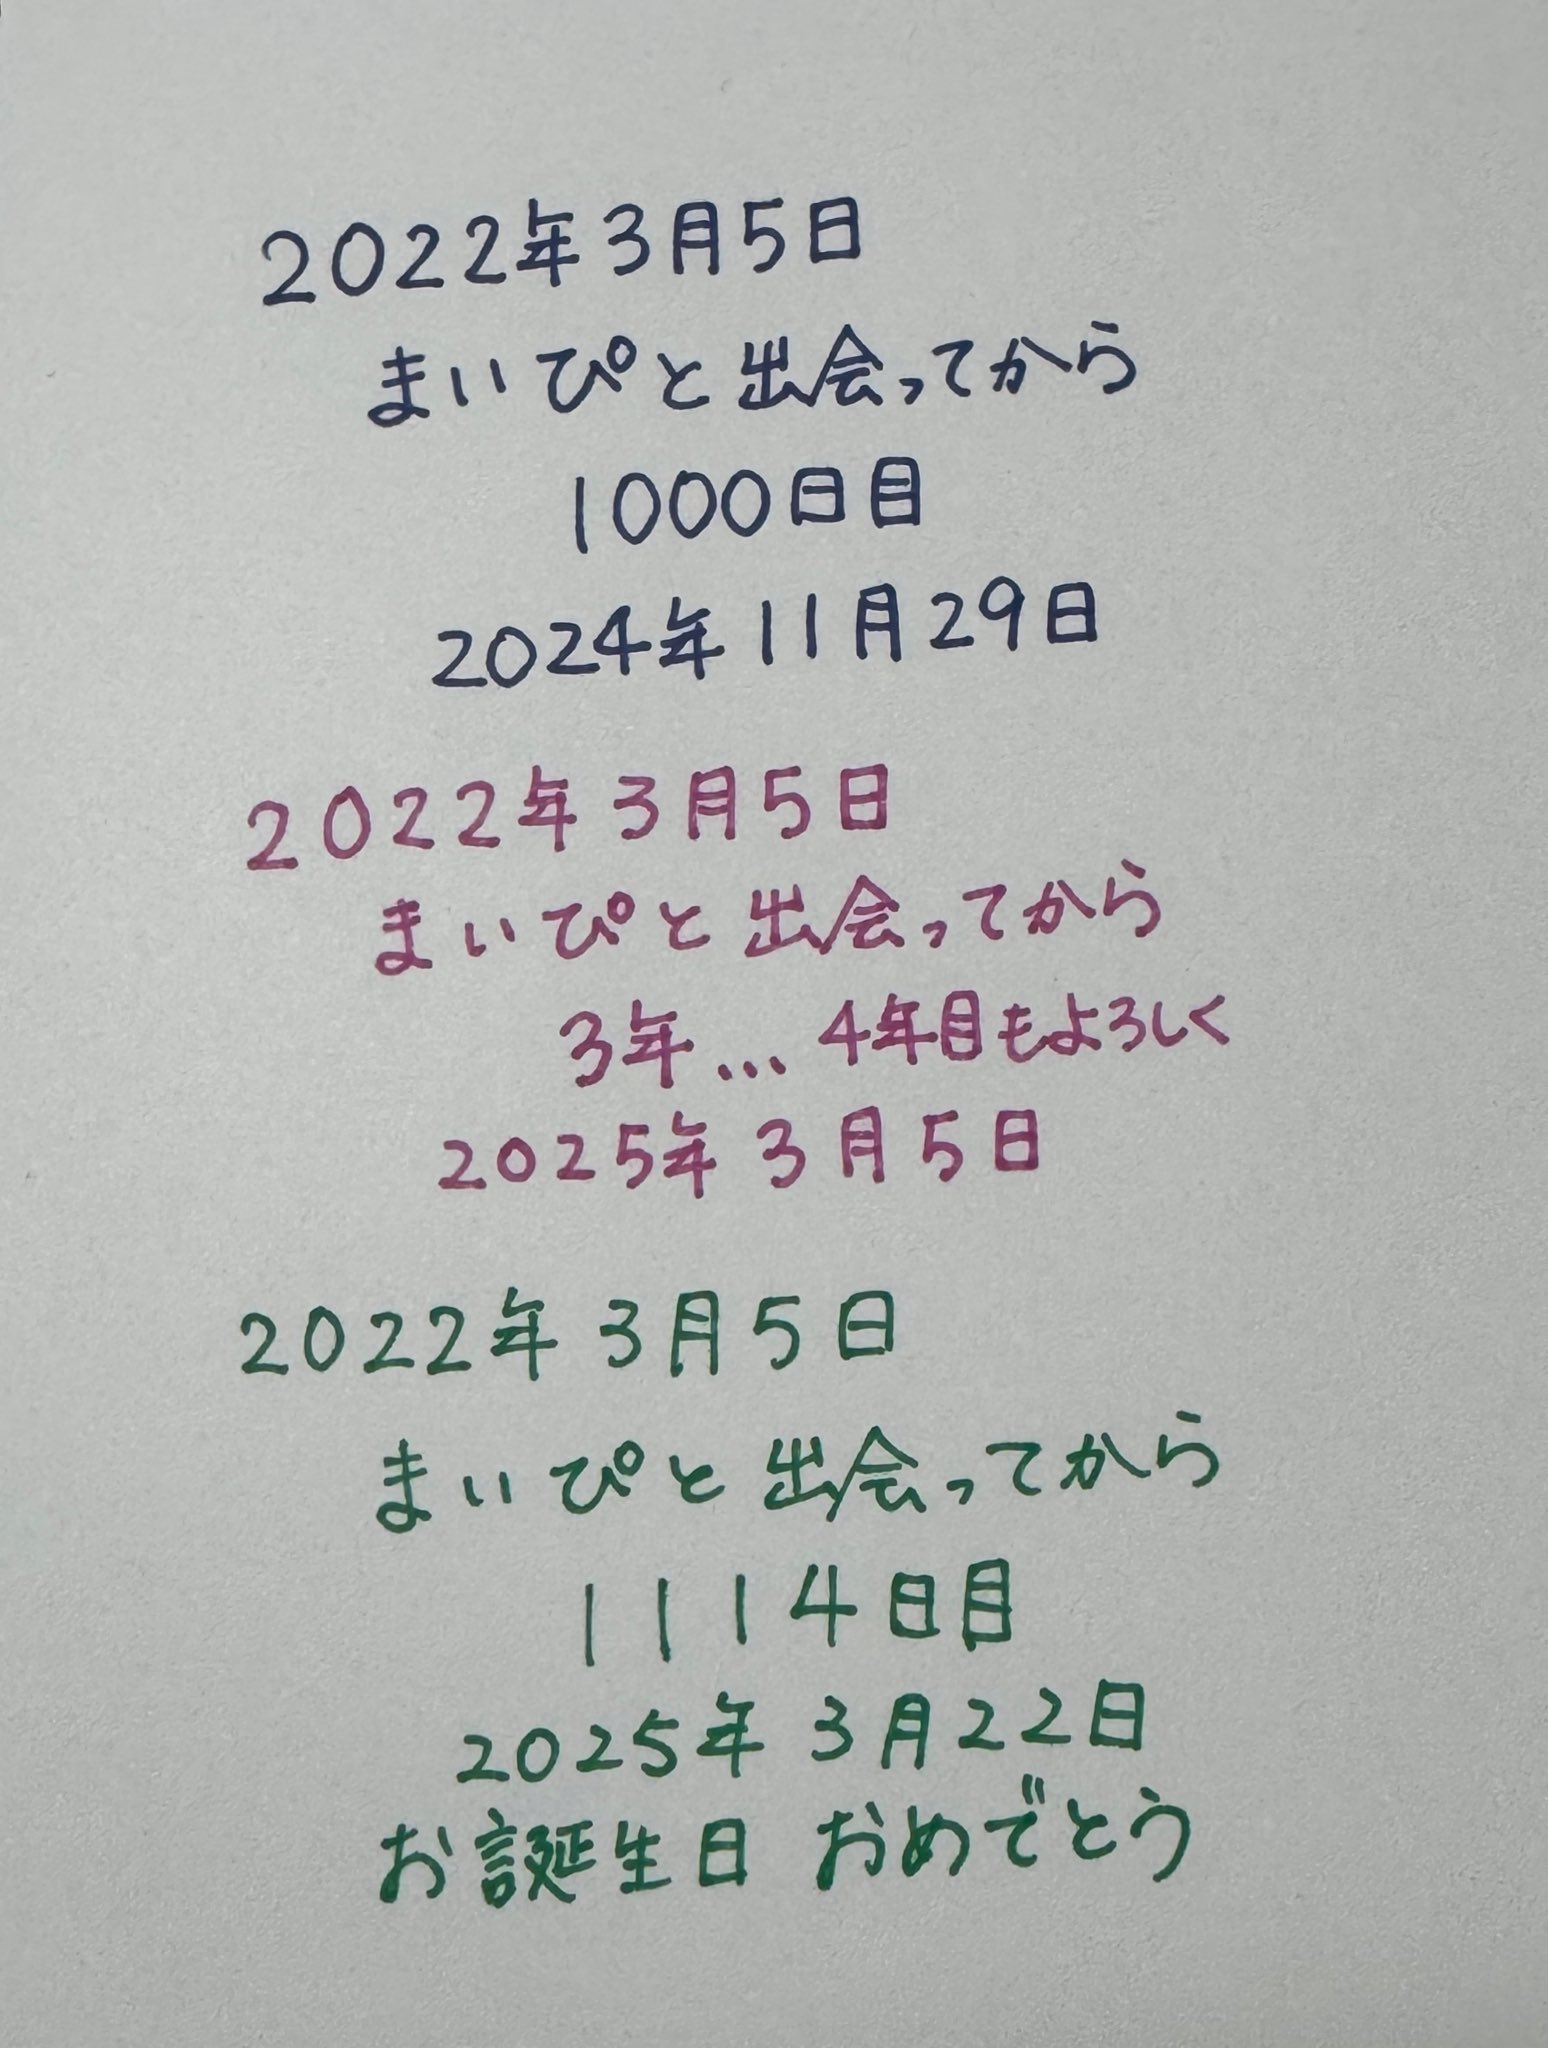 2022年3月5日
まいぴと出会ってから
1000日目
2024年11月29日
2022年3月5日
まいぴと出会ってから
3年...4年目もよろしく
2025年3月5日
2022年3月5日
まいぴと出会ってから
1114日目
2025年3月22日
お誕生日 おめでとう